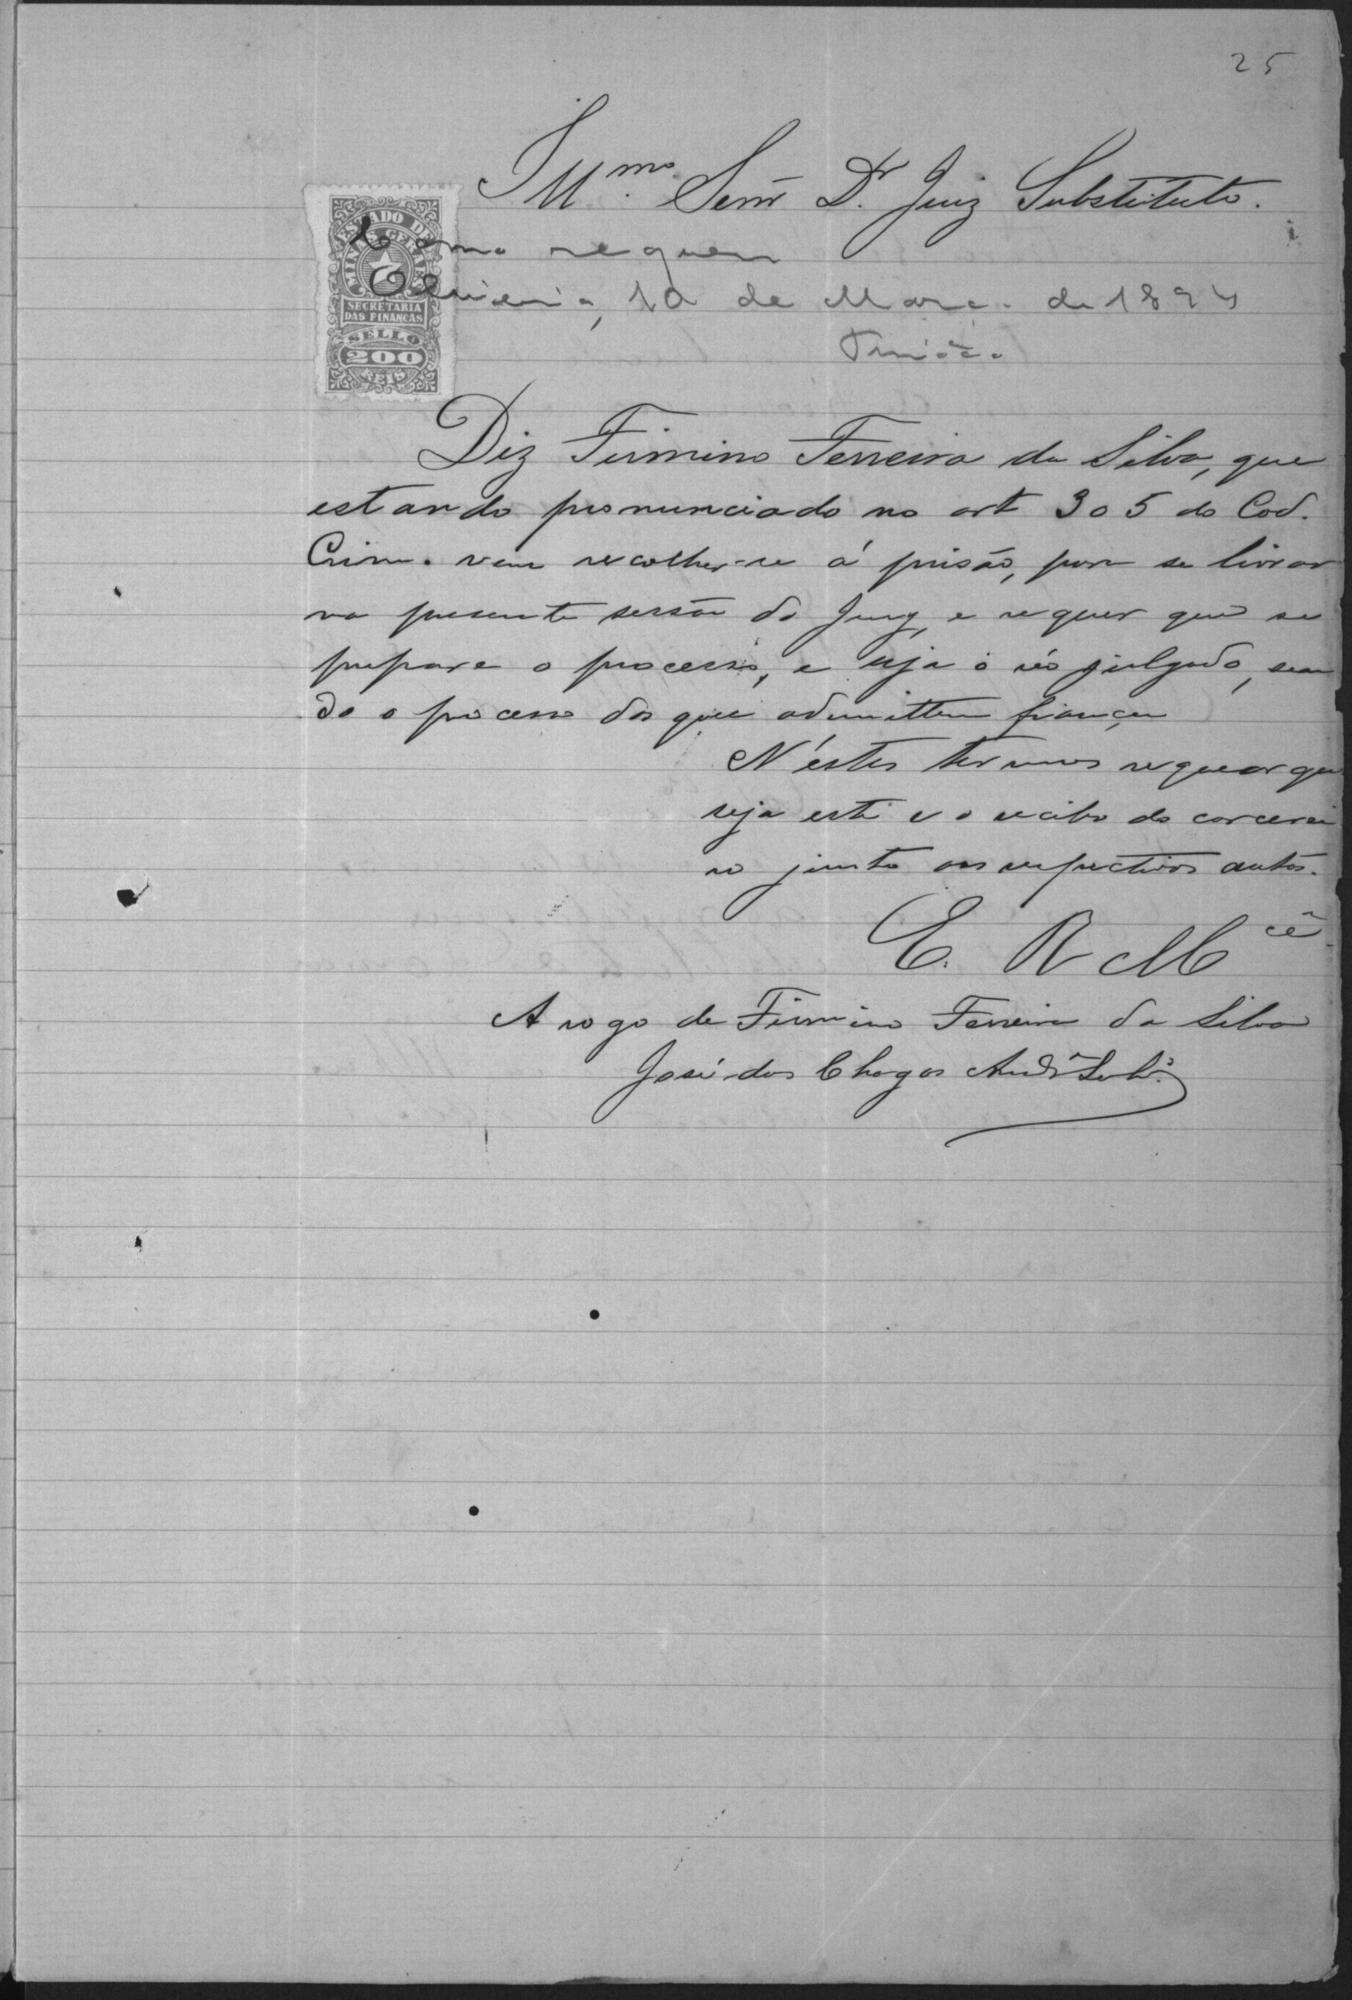 25
Illm.mo Senr Dr Juiz Substituto.
ESTADO DE
MINAS GERAES
SECRETARIA
DAS FINANCAS
SELLO
200
REIS
Como requer
Oliveira, 10 de Março de 1894
Diz Firmino Ferreira da Silva, que
estando pronunciado no art 305 do Cod.
Crim. vem recolher-se á prisão, para se livrar
na presente sessão do Jury, e requer que se
prepare o processo, e seja o réo julgado, sen
do o processo dos que admittem fiança
N'éstes termos requer que
seja esta e o recibo do carcerei
ro junto aos respectivos autos.
E. R. Mcê
A rogo de Firmino Ferreira da Silva
José das Chagas